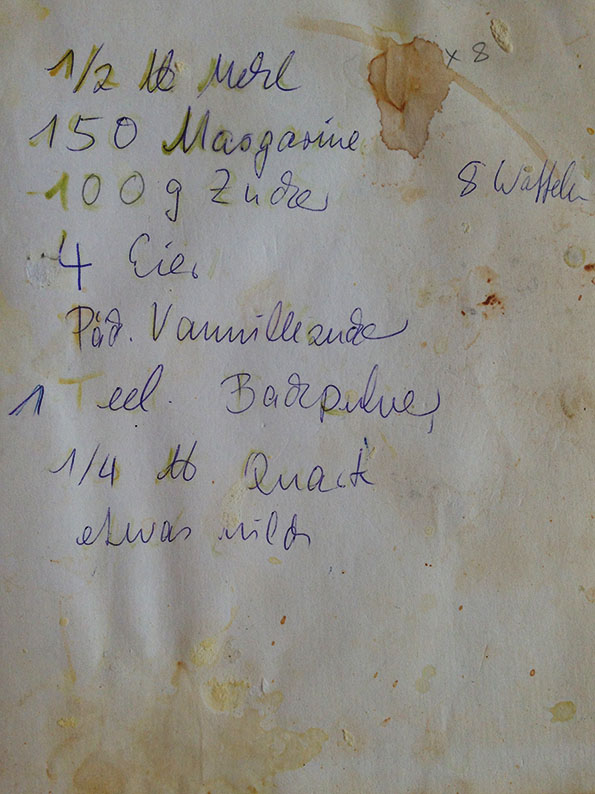 1/2 ℔ Mehl
x 8
150 Margarine
100 g Zucker
8 Waffeln
4 Eier
Päck. Vannillezucker
1 Teel. Backpulver
1/4 ℔. Quark
etwas milch